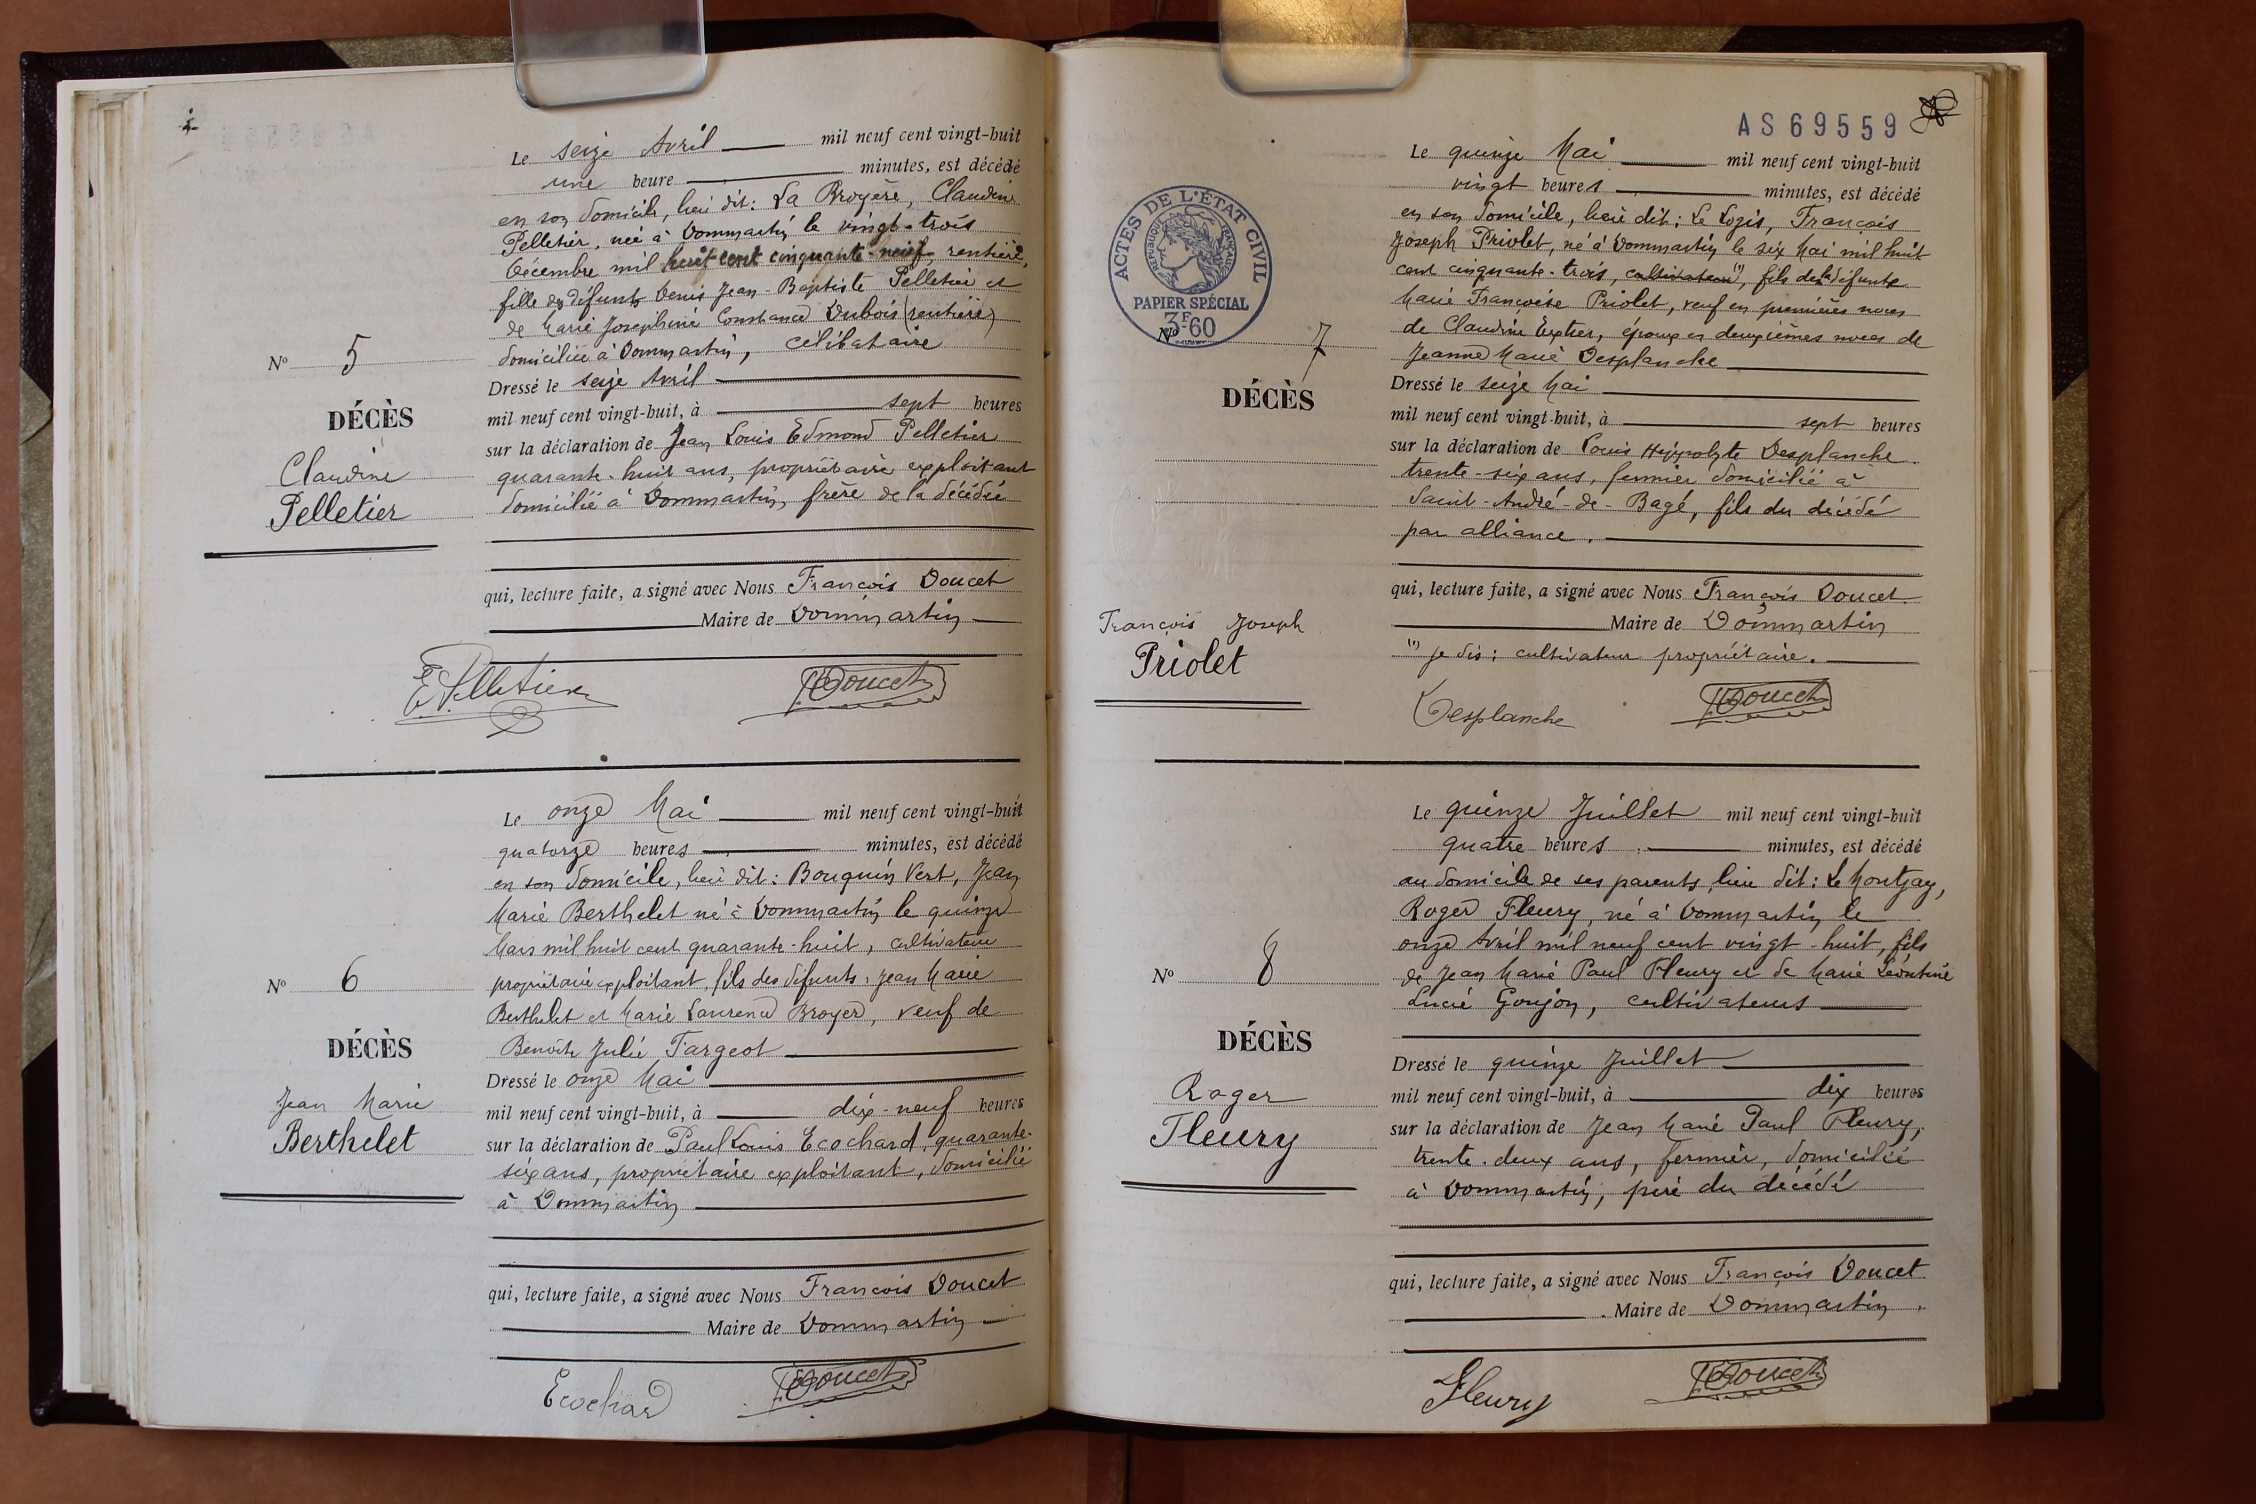 Le seize Avril mil neuf cent vingt-huit
une heure minutes, est décédé
en son domicile, lieu dit: La Broyère, Claudine
Pelletier, née à Dommartin le vingt-trois
Décembre mil huit cent cinquante-neuf, rentière,
fille des défunts Denis Jean-Baptiste Pelletier et
de Marie Joséphine Constance Dubois (rentière)
domiciliée à Dommartin, célibataire
Nº 5
DÉCÈS
Claudine
Pelletier
Dressé le seize Avril
mil neuf cent vingt-huit, à sept heures
sur la déclaration de Jean Louis Edmond Pelletier
quarante-huit ans, propriétaire exploitant
domicilié à Dommartin, frère de la décédée
qui, lecture faite, a signé avec Nous François Doucet
Maire de Dommartin
E. Pelletier
F. Doucet
Le onze Mai mil neuf cent vingt-huit
quatorze heures minutes, est décédé
en son domicile, lieu dit: Bouquin Vert, Jean
Marie Berthelet né à Dommartin le quinze
Mars mil huit cent quarante-huit, cultivateur
propriétaire exploitant, fils des défunts: Jean Marie
Berthelet et Marie Laurence Broyer, veuf de
Benoîte Julie Fargeot
Nº 6
DÉCÈS
Jean Marie
Berthelet
Dressé le onze Mai
mil neuf cent vingt-huit, à dix-neuf heures
sur la déclaration de Paul Louis Ecochard, quarante-
six ans, propriétaire exploitant, domicilié
à Dommartin
qui, lecture faite, a signé avec Nous François Doucet
Maire de Dommartin
Ecochard
F. Doucet
AS69559
ACTES DE L'ÉTAT CIVIL
RÉPUBLIQUE FRANÇAISE
PAPIER SPÉCIAL
3F60
Le quinze Mai mil neuf cent vingt-huit
vingt heures minutes, est décédé
en son domicile, lieu dit: Le Logis, François
Joseph Priolet, né à Dommartin le six Mai mil huit
cent cinquante-trois, cultivateur (1), fils de la défunte
Marie Françoise Priolet, veuf en premières noces
de Claudine Extier, époux en deuxièmes noces de
Jeanne Marie Desplanche
Nº 7
DÉCÈS
François Joseph
Priolet
Dressé le seize Mai
mil neuf cent vingt-huit, à sept heures
sur la déclaration de Louis Hippolyte Desplanche
trente-six ans, fermier domicilié à
Saint-André-de-Bagé, fils du décédé
par alliance.
qui, lecture faite, a signé avec Nous François Doucet
Maire de Dommartin
(1) je dis: cultivateur propriétaire.
Desplanche
F. Doucet
Le quinze Juillet mil neuf cent vingt-huit
quatre heures minutes, est décédé
au domicile de ses parents, lieu dit: Le Montjay,
Roger Fleury, né à Dommartin le
onze Avril mil neuf cent vingt-huit, fils
de Jean Marie Paul Fleury et de Marie Léontine
Lucie Goujon, cultivateurs
Nº 8
DÉCÈS
Roger
Fleury
Dressé le quinze Juillet
mil neuf cent vingt-huit, à dix heures
sur la déclaration de Jean Marie Paul Fleury,
trente-deux ans, fermier, domicilié
à Dommartin, père du décédé
qui, lecture faite, a signé avec Nous François Doucet
Maire de Dommartin
Fleury
F. Doucet